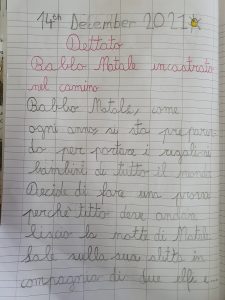 14th December 2021
Dettato
Babbo Natale incastrato
nel camino
Babbo Natale, come
ogni anno, si sta preparan
do per portare i regali ai
bambini di tutto il mondo.
Decide di fare una prova
perché tutto deve andare
liscio la notte di Natale.
Sale sulla sua slitta in
compagnia di due elfi e...